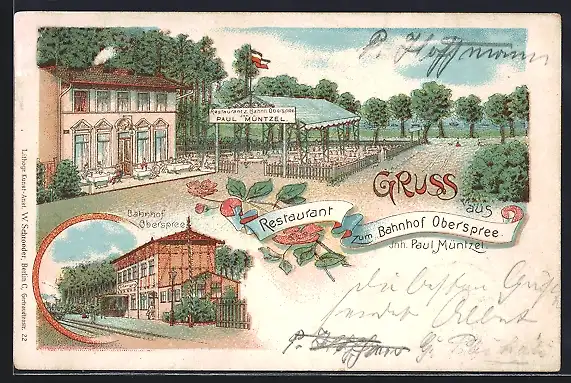 P. Hoffmann
Restaurant z. Bahnh. Oberspree
PAUL MÜNTZEL.
GRUSS
aus
Restaurant
zum Bahnhof Oberspree
Jnh. Paul Müntzel.
Bahnhof
Oberspree
Die besten
sendet
P. Hoffmann
Lithogr. Kunst-Anst. W. Schroeder, Berlin C, 22